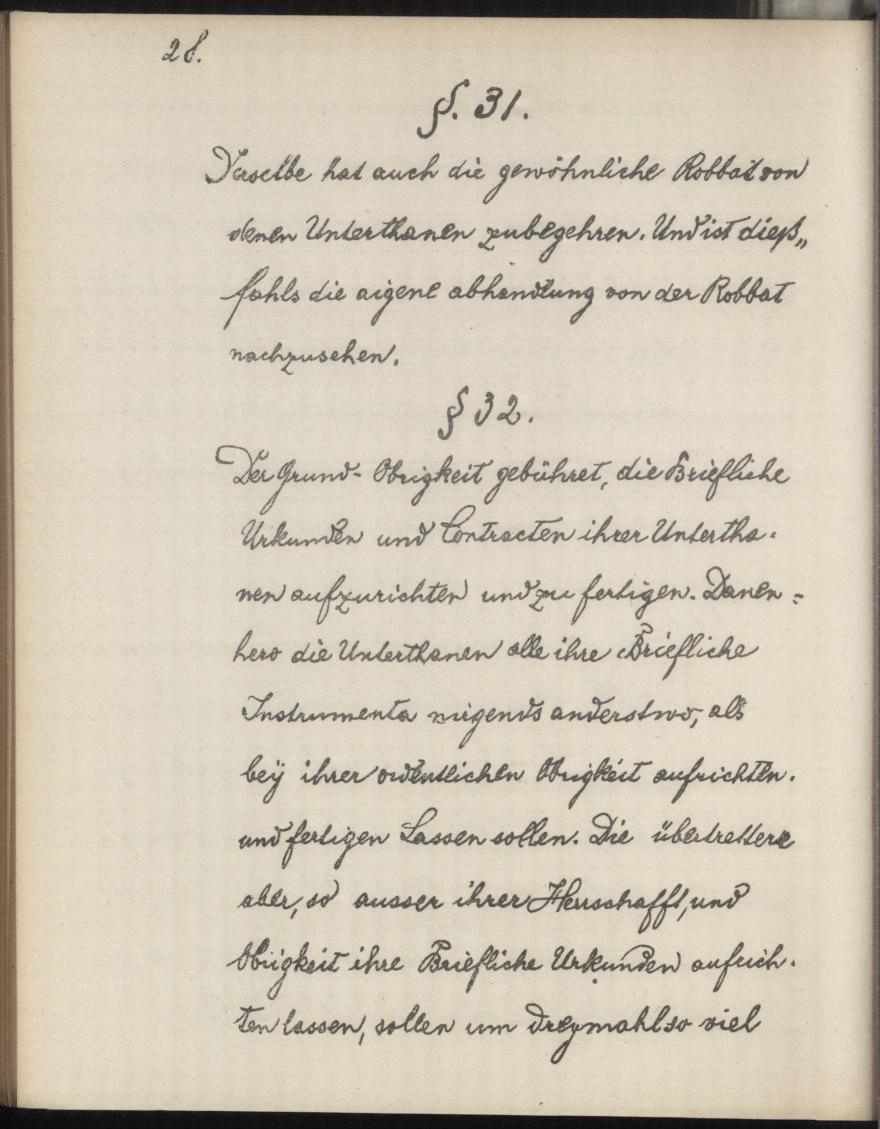 28.
§. 31.
Derselbe hat auch die gewöhnliche Robbat von
denen Unterthanen zubegehren. Und ist dieß„
fahls die aigene abhandlung von der Robbat
nachzusehen.
§ 32.
Der Grund- Obrigkeit gebühret, die Briefliche
Urkunden und Contracten ihrer Untertha-
nen aufzurichten und zu fertigen. Danen=
hero die Unterthanen alle ihre Briefliche
Instrumenta nirgends anderstwo, als
beÿ ihrer ordentlichen Obrigkeit aufrichten.
und fertigen Lassen sollen. Die übertrettere
aber, so ausser ihrer Herrschafft, und
Obrigkeit ihre Briefliche Urkunden aufrich-
ten lassen, sollen um dreymahl so viel